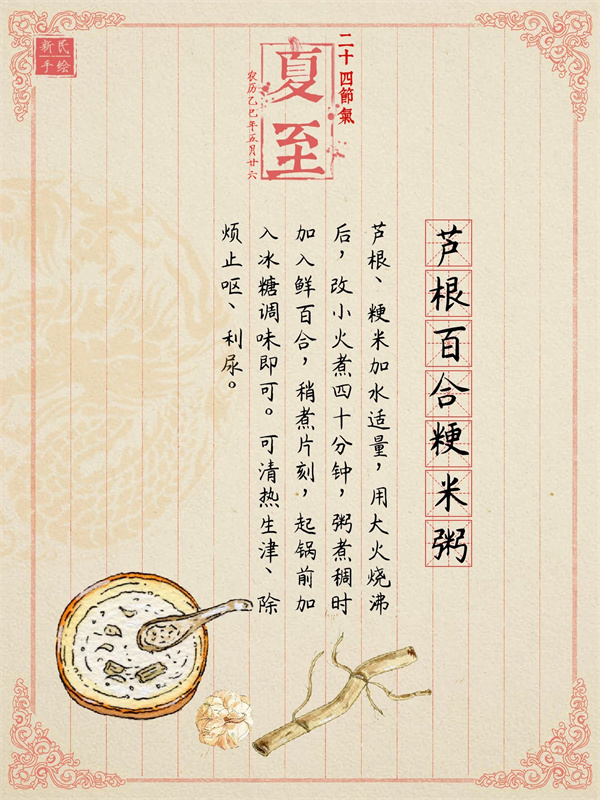 新民
手绘
二十四節氣
夏至
农历乙巳年五月廿六
芦根百合粳米粥
芦根、粳米加水适量，用大火烧沸
后，改小火煮四十分钟，粥煮稠时
加入鲜百合，稍煮片刻，起锅前加
入冰糖调味即可。可清热生津、除
烦止呕、利尿。